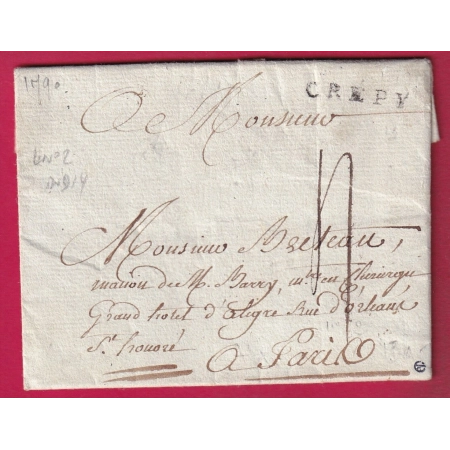 1790
CREPY
A Monsieur
Lenoz
INDIY
4
Monsieur Breteau,
maison de M. Barry, m.tre en Chirurgie
Grand hotel d'aligre Rue d'orleans
St. honoré
A Paris